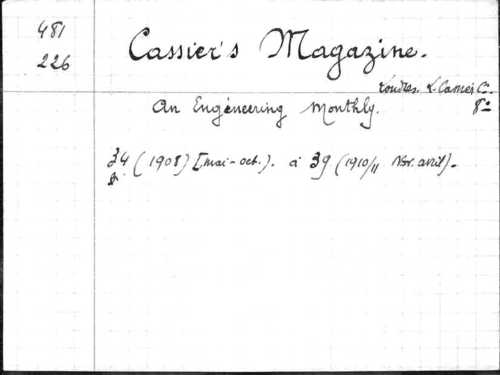 481
226
Cassier's Magazine.
Londres. Cassier Co.
An Engineering Monthly. 8º
34 (1908) [mai-oct.). à 39 (1910/11 Nov. avril).